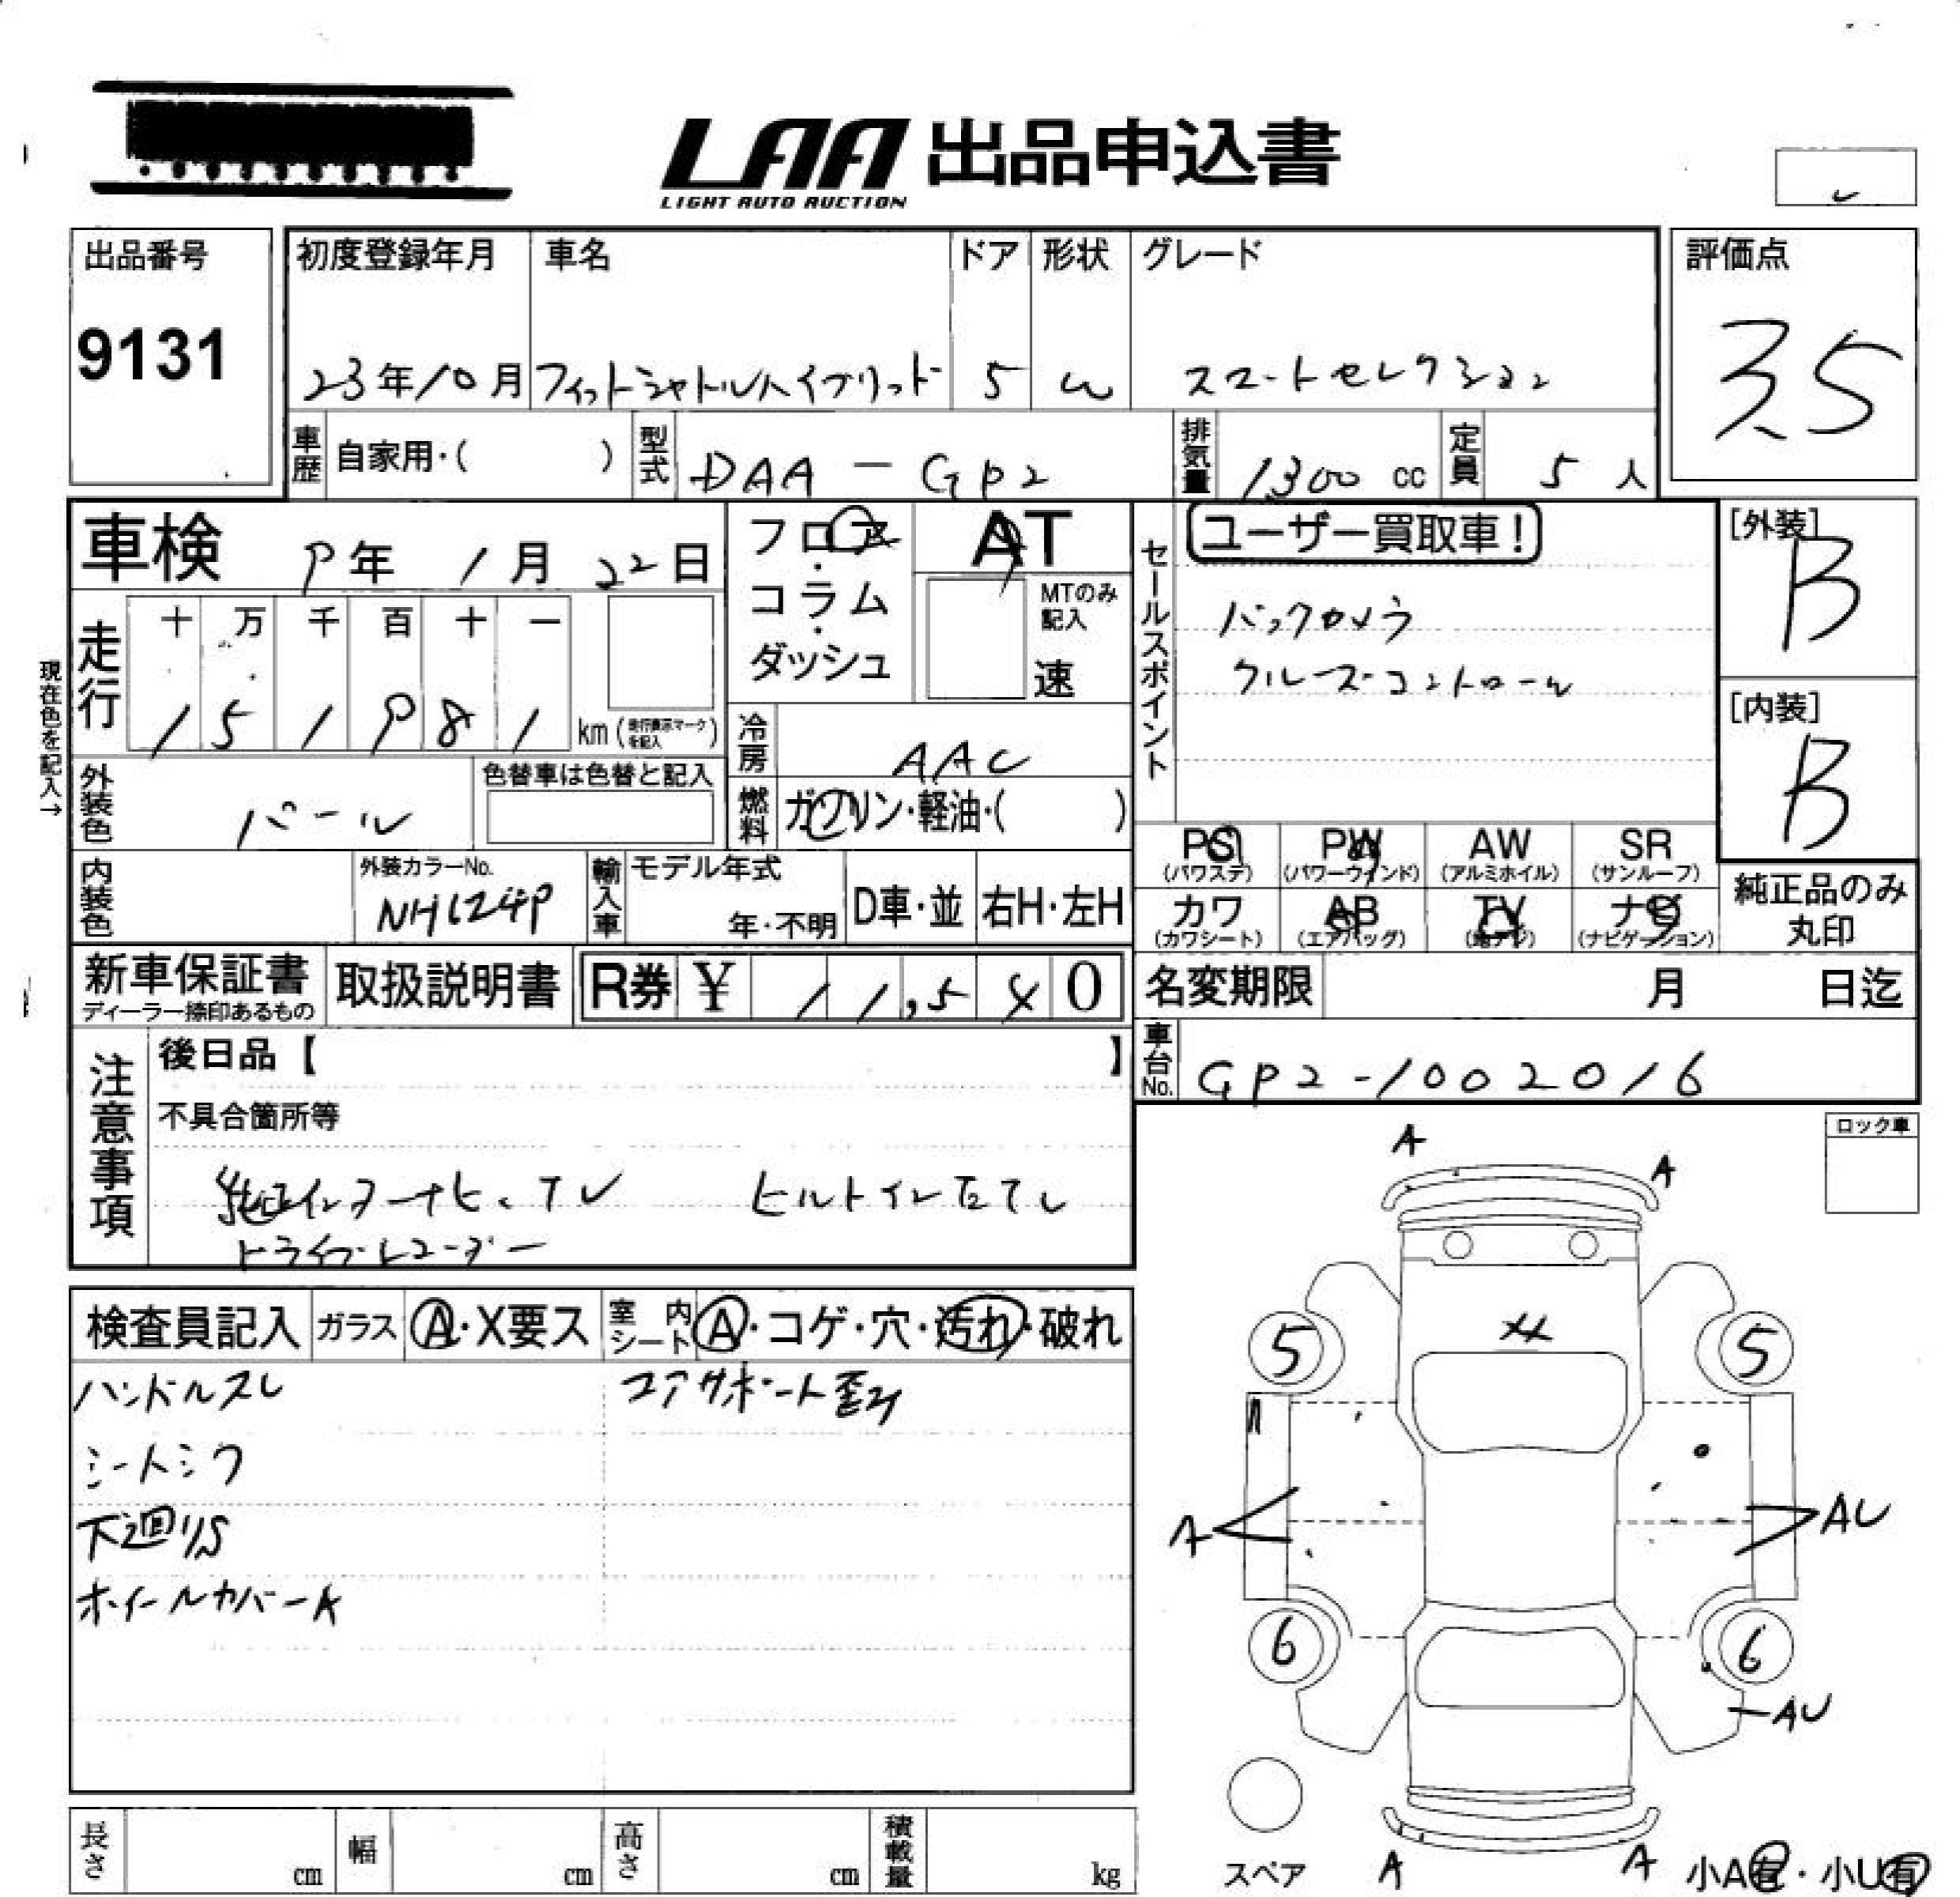 LAA 出品申込書
LIGHT AUTO AUCTION
出品番号
9131
初度登録年月
23年10月
車名
フィットシャトルハイブリッド
ドア
5
形状
W
グレード
スマートセレクション
評価点
3.5
車歴 自家用・( )
型式 DAA-GP2
排気量 1300 cc
定員 5人
車検 9年1月22日
フロア・コラム・ダッシュ
AT
MTのみ記入
速
セールスポイント
ユーザー買取車！
バックカメラ
クルーズコントロール
[外装]
B
[内装]
B
現在色を記入→
走行
十 万 千 百 十 一
1 5 1 9 8 1 km (走行表示マークを記入)
冷房 AAC
燃料 ガソリン・軽油・( )
外装色 パール
色替車は色替と記入
内装色
外装カラーNo.
NH624P
輸入車 モデル年式
年・不明
D車・並
右H・左H
PS (パワステ)
PW (パワーウインド)
AW (アルミホイル)
SR (サンルーフ)
カワ (カワシート)
AB (エアバッグ)
TV (地デジ)
ナビ (ナビゲーション)
純正品のみ
丸印
新車保証書
ディーラー捺印あるもの
取扱説明書
R券 ¥ 11,5 0
名変期限 月 日迄
車台No. GP2-1002016
注意事項
後日品【 】
不具合箇所等
純正インターナビ、TV ビルトインETC
ドライブレコーダー
ロック車
検査員記入
ガラス A・X要ス
室内シート A・コゲ・穴・汚れ・破れ
ハンドルスレ
コアサポート歪み
シートシワ
下廻りS
ホイールカバーA
A
A
XX
5
5
A
AU
6
6
AU
スペア
A
A
小A有・小U有
長さ cm
幅 cm
高さ cm
積載量 kg